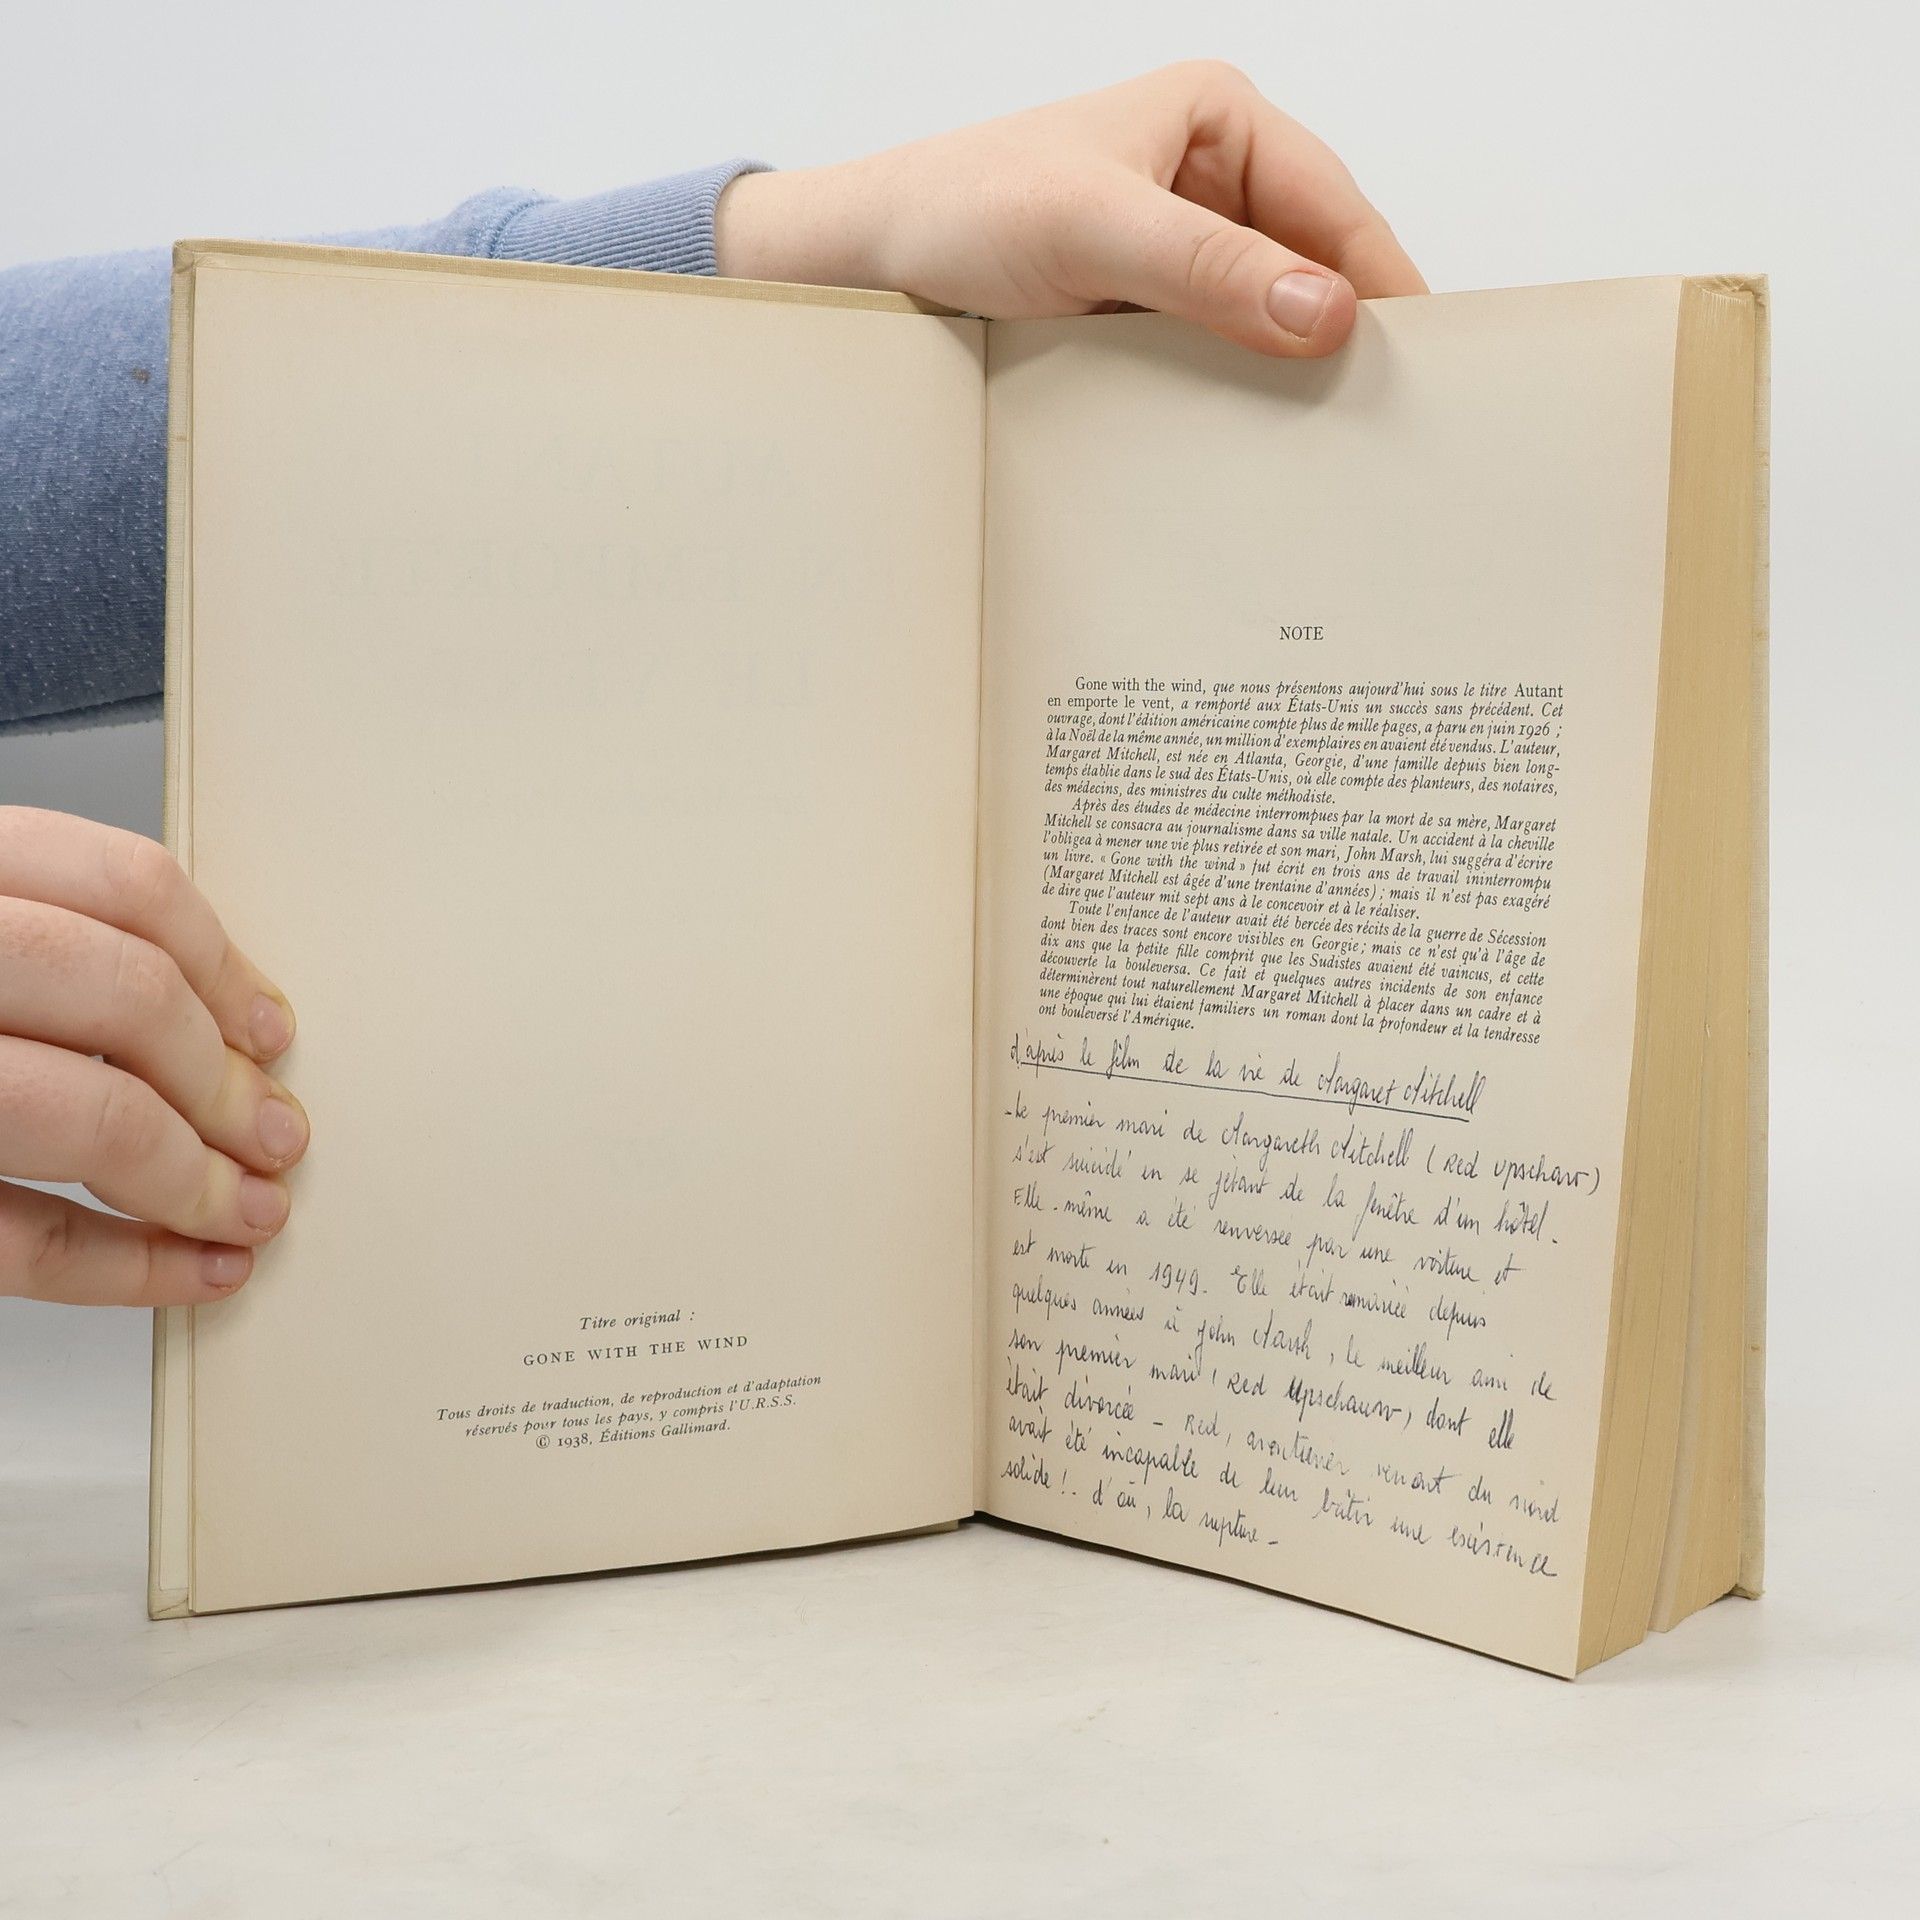 Titre original :
GONE WITH THE WIND
Tous droits de traduction, de reproduction et d'adaptation
réservés pour tous les pays, y compris l'U.R.S.S.
© 1938, Éditions Gallimard.
NOTE
Gone with the wind, que nous présentons aujourd'hui sous le titre Autant
en emporte le vent, a remporté aux États-Unis un succès sans précédent. Cet
ouvrage, dont l'édition américaine compte plus de mille pages, a paru en juin 1926 ;
à la Noël de la même année, un million d'exemplaires en avaient été vendus. L'auteur,
Margaret Mitchell, est née en Atlanta, Georgie, d'une famille depuis bien long-
temps établie dans le sud des États-Unis, où elle compte des planteurs, des notaires,
des médecins, des ministres du culte méthodiste.
Après des études de médecine interrompues par la mort de sa mère, Margaret
Mitchell se consacra au journalisme dans sa ville natale. Un accident à la cheville
l'obligea à mener une vie plus retirée et son mari, John Marsh, lui suggéra d'écrire
un livre. « Gone with the wind » fut écrit en trois ans de travail ininterrompu
(Margaret Mitchell est âgée d'une trentaine d'années) ; mais il n'est pas exagéré
de dire que l'auteur mit sept ans à le concevoir et à le réaliser.
Toute l'enfance de l'auteur avait été bercée des récits de la guerre de Sécession
dont bien des traces sont encore visibles en Georgie ; mais ce n'est qu'à l'âge de
dix ans que la petite fille comprit que les Sudistes avaient été vaincus, et cette
découverte la bouleversa. Ce fait et quelques autres incidents de son enfance
déterminèrent tout naturellement Margaret Mitchell à placer dans un cadre et à
une époque qui lui étaient familiers un roman dont la profondeur et la tendresse
ont bouleversé l'Amérique.
d'après le film de la vie de Margaret Mitchell
- Le premier mari de Margareth Mitchell (Red Upschaw)
s'est suicidé en se jetant de la fenêtre d'un hôtel -
Elle-même a été renversée par une voiture et
est morte en 1949. Elle était remariée depuis
quelques années à John Marsh, le meilleur ami de
son premier mari (Red Upschauw) dont elle
était divorcée - Red, aventurier venant du nord
avait été incapable de leur bâtir une existence
solide !- d'où, la rupture -